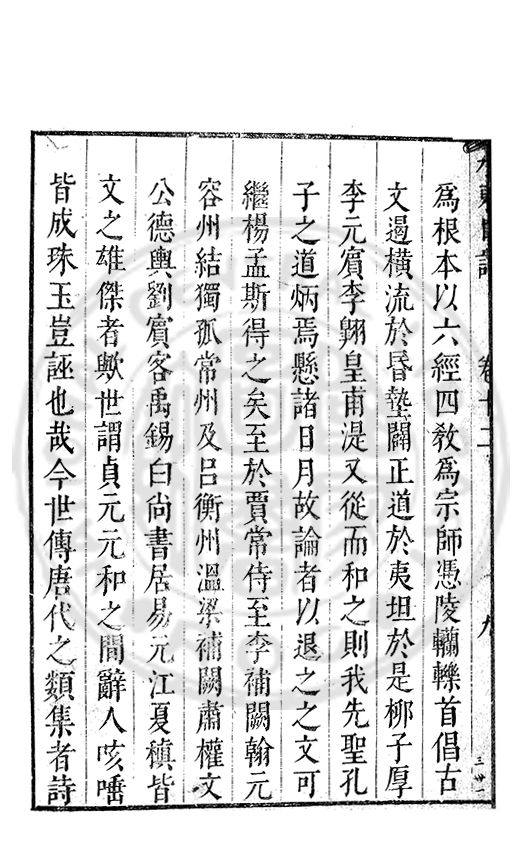 卷十二
九
為根本以六經四教為宗師憑陵轥轢首倡古
文遏橫流於昬墊闢正道於夷坦於是柳子厚
李元賓李翺皇甫湜又從而和之則我先聖孔
子之道炳焉懸諸日月故論者以退之之文可
繼楊孟斯得之矣至於賈常侍至李補闕翰元
容州結獨孤常州及呂衡州溫梁補闕肅權文
公德輿劉賓客禹錫白尚書居易元江夏稹皆
文之雄傑者歟世謂貞元元和之間辭人咳唾
皆成珠玉豈誣也哉今世傳唐代之類集者詩